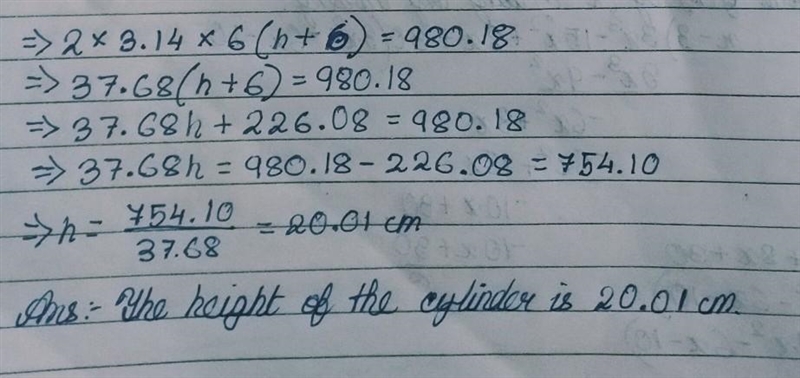 ⇒ 2 × 3.14 × 6 (h + 6) = 980.18
⇒ 37.68 (h + 6) = 980.18
⇒ 37.68h + 226.08 = 980.18
⇒ 37.68h = 980.18 - 226.08 = 754.10
⇒ h = 754.10 / 37.68 = 20.01 cm
Ans:- The height of the cylinder is 20.01 cm.